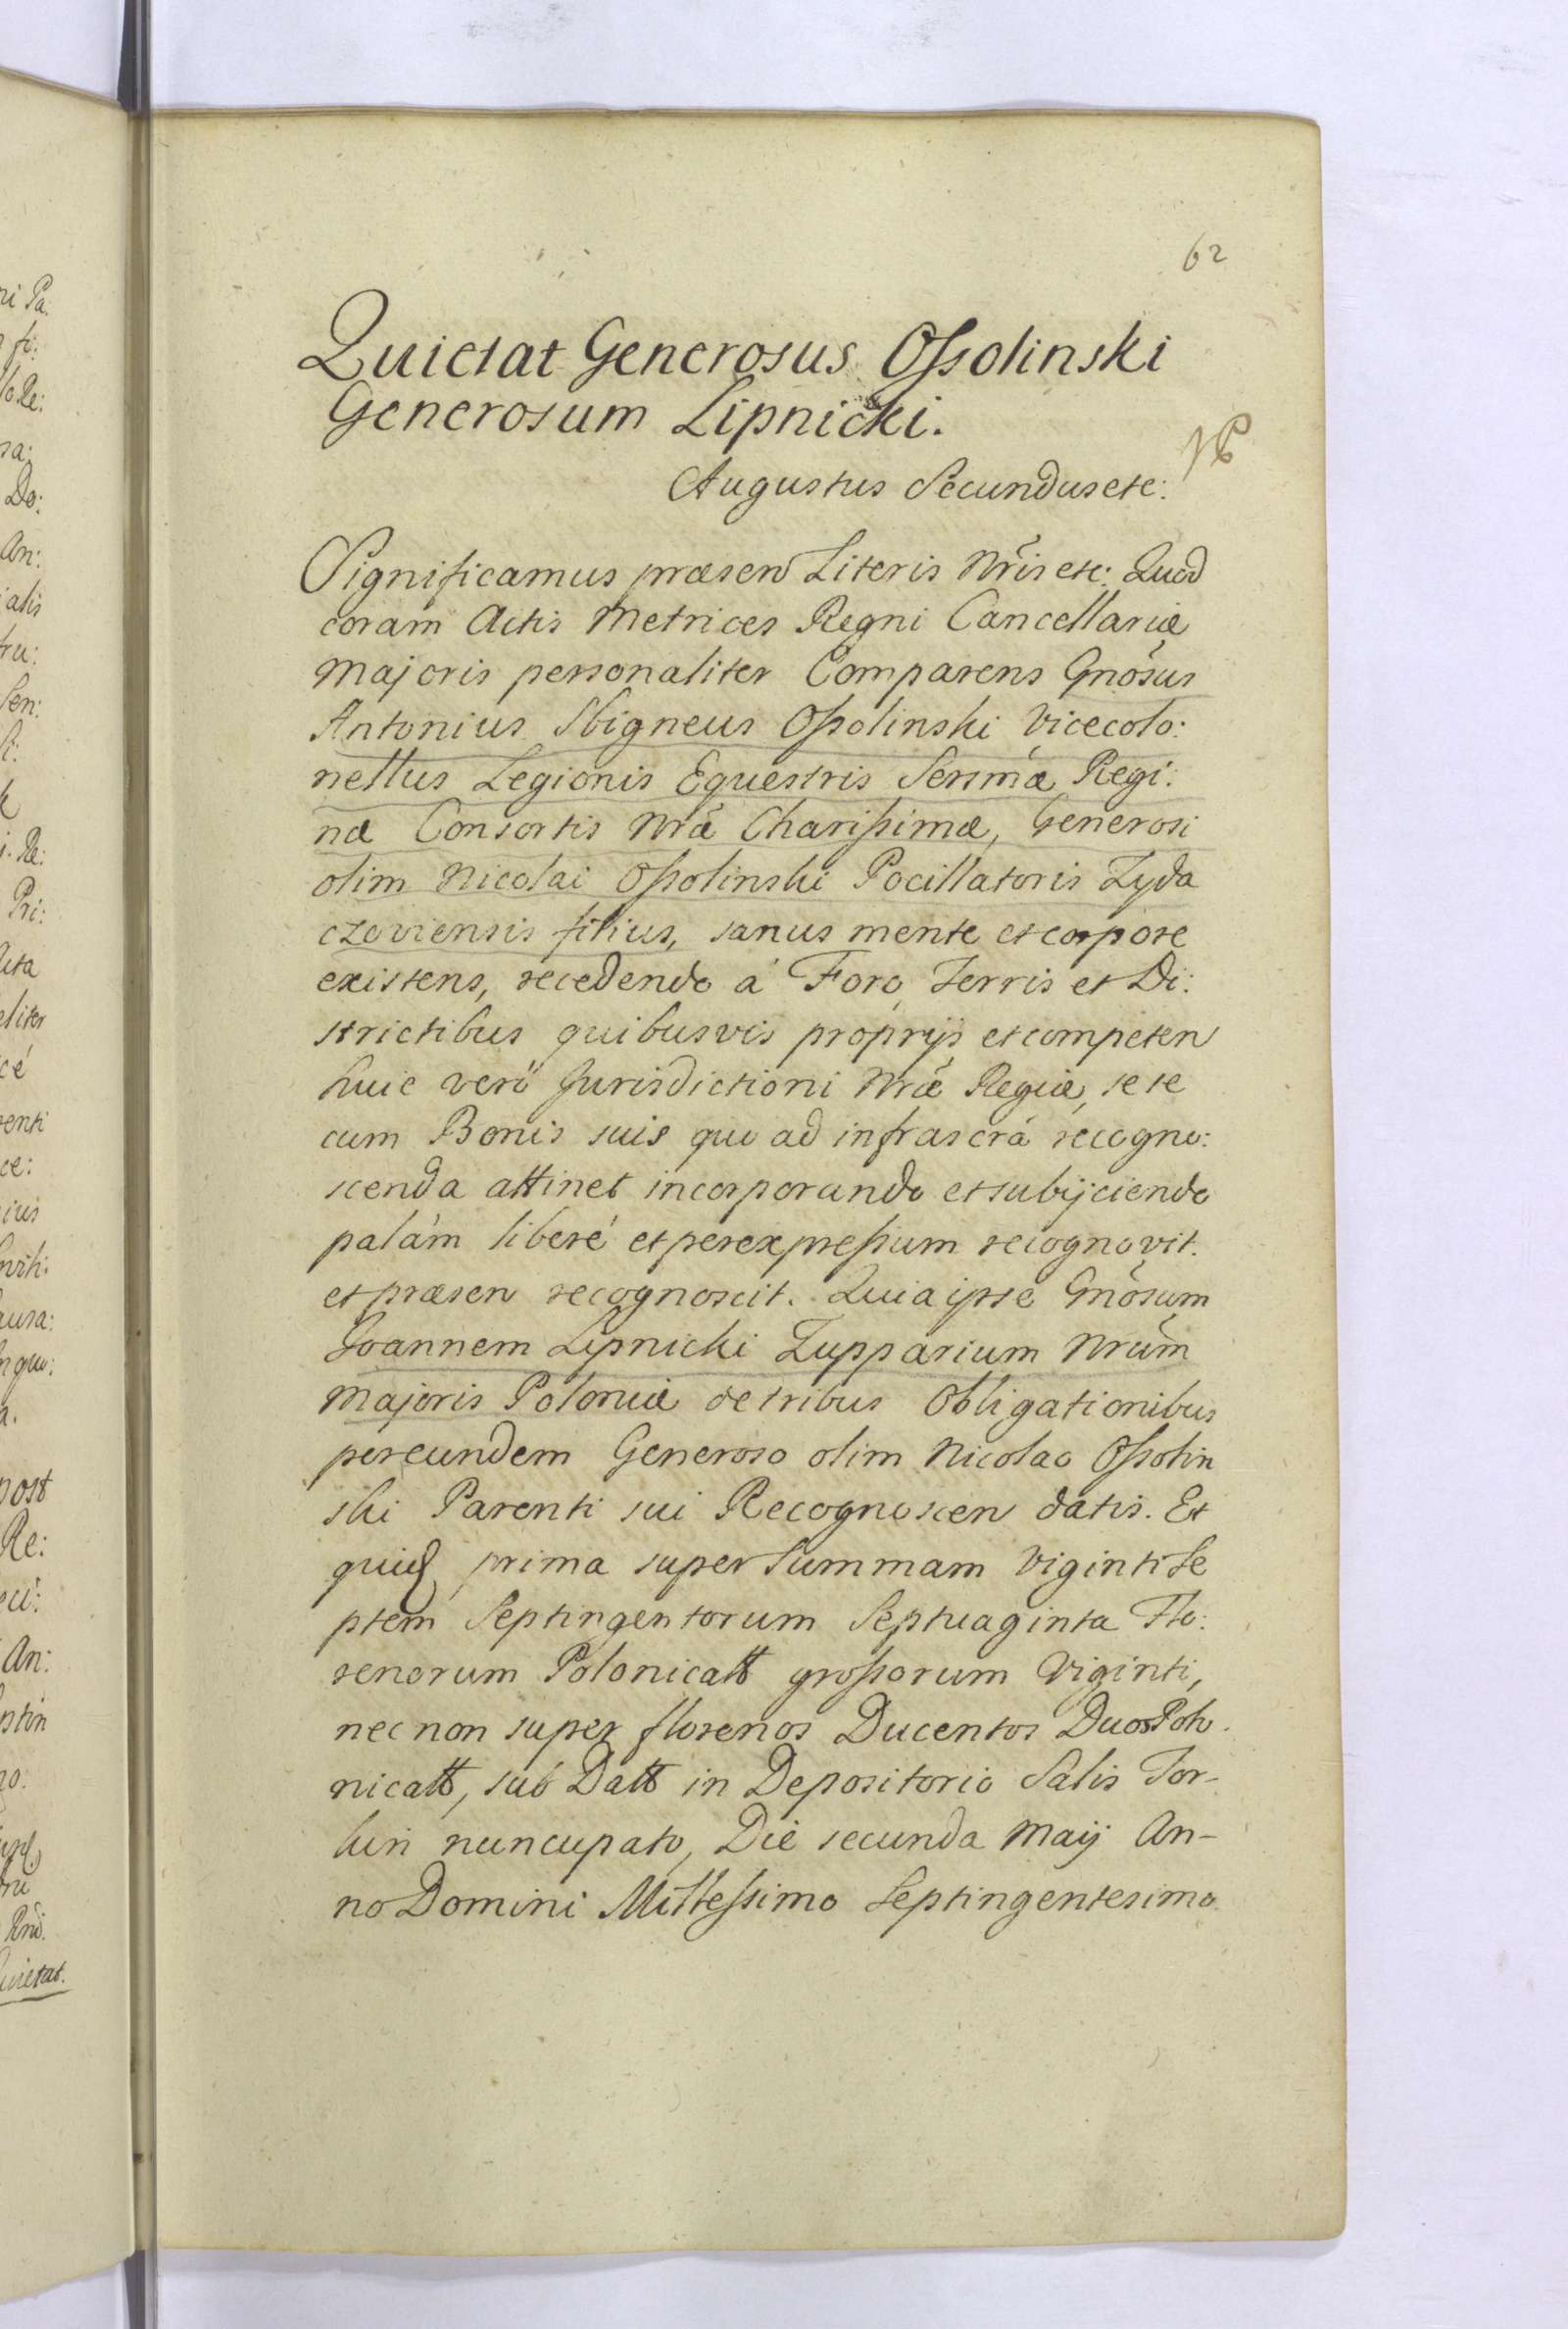 62
Quietat Generosus Ossolinski
Generosum Lipnicki.
Augustus Secundus etc:
Significamus præsen Literis Nr̃is etc: Quod
coram Actis Metrices Regni Cancellariæ
Majoris personaliter Comparens Gnõsus
Antonius Sbigneus Ossolinski Vicecolo:
nellus Legionis Equestris Serm̃æ Regi:
næ Consortis Nrã Charissimæ, Generosi
olim Nicolai Ossolinski Pocillatoris Zyda
czoviensis filius, sanus mente et corpore
existens, recedendo á Foro Terris et Di:
strictibus quibusvis proprijs et competen
huic verò Jurisdictioni Nrẽ Regiæ, sese
cum Bonis suis quo ad infrascrã recogno:
scenda attinet incorporando et subijciendo
palám liberé et perexpressum recognovit.
et præsen recognoscit. Quia ipse Gnõsum
Joannem Lipnicki Zupparium Nrũm
Majoris Poloniæ de tribus Obligationibus
per eundem Generoso olim Nicolao Ossolin
ski Parenti sui Recognoscen datis. Et
prima super Summam Viginti Se
ptem Septingentorum Septuaginta Flo:
renorum Polonicatt grossorum Viginti,
nec non super florenos Ducentos Duos Polo.
nicatt, sub Datt in Depositorio Salis For-
hun nuncupato, Die secunda Maij An-
no Domini Millessimo Septingentesimo